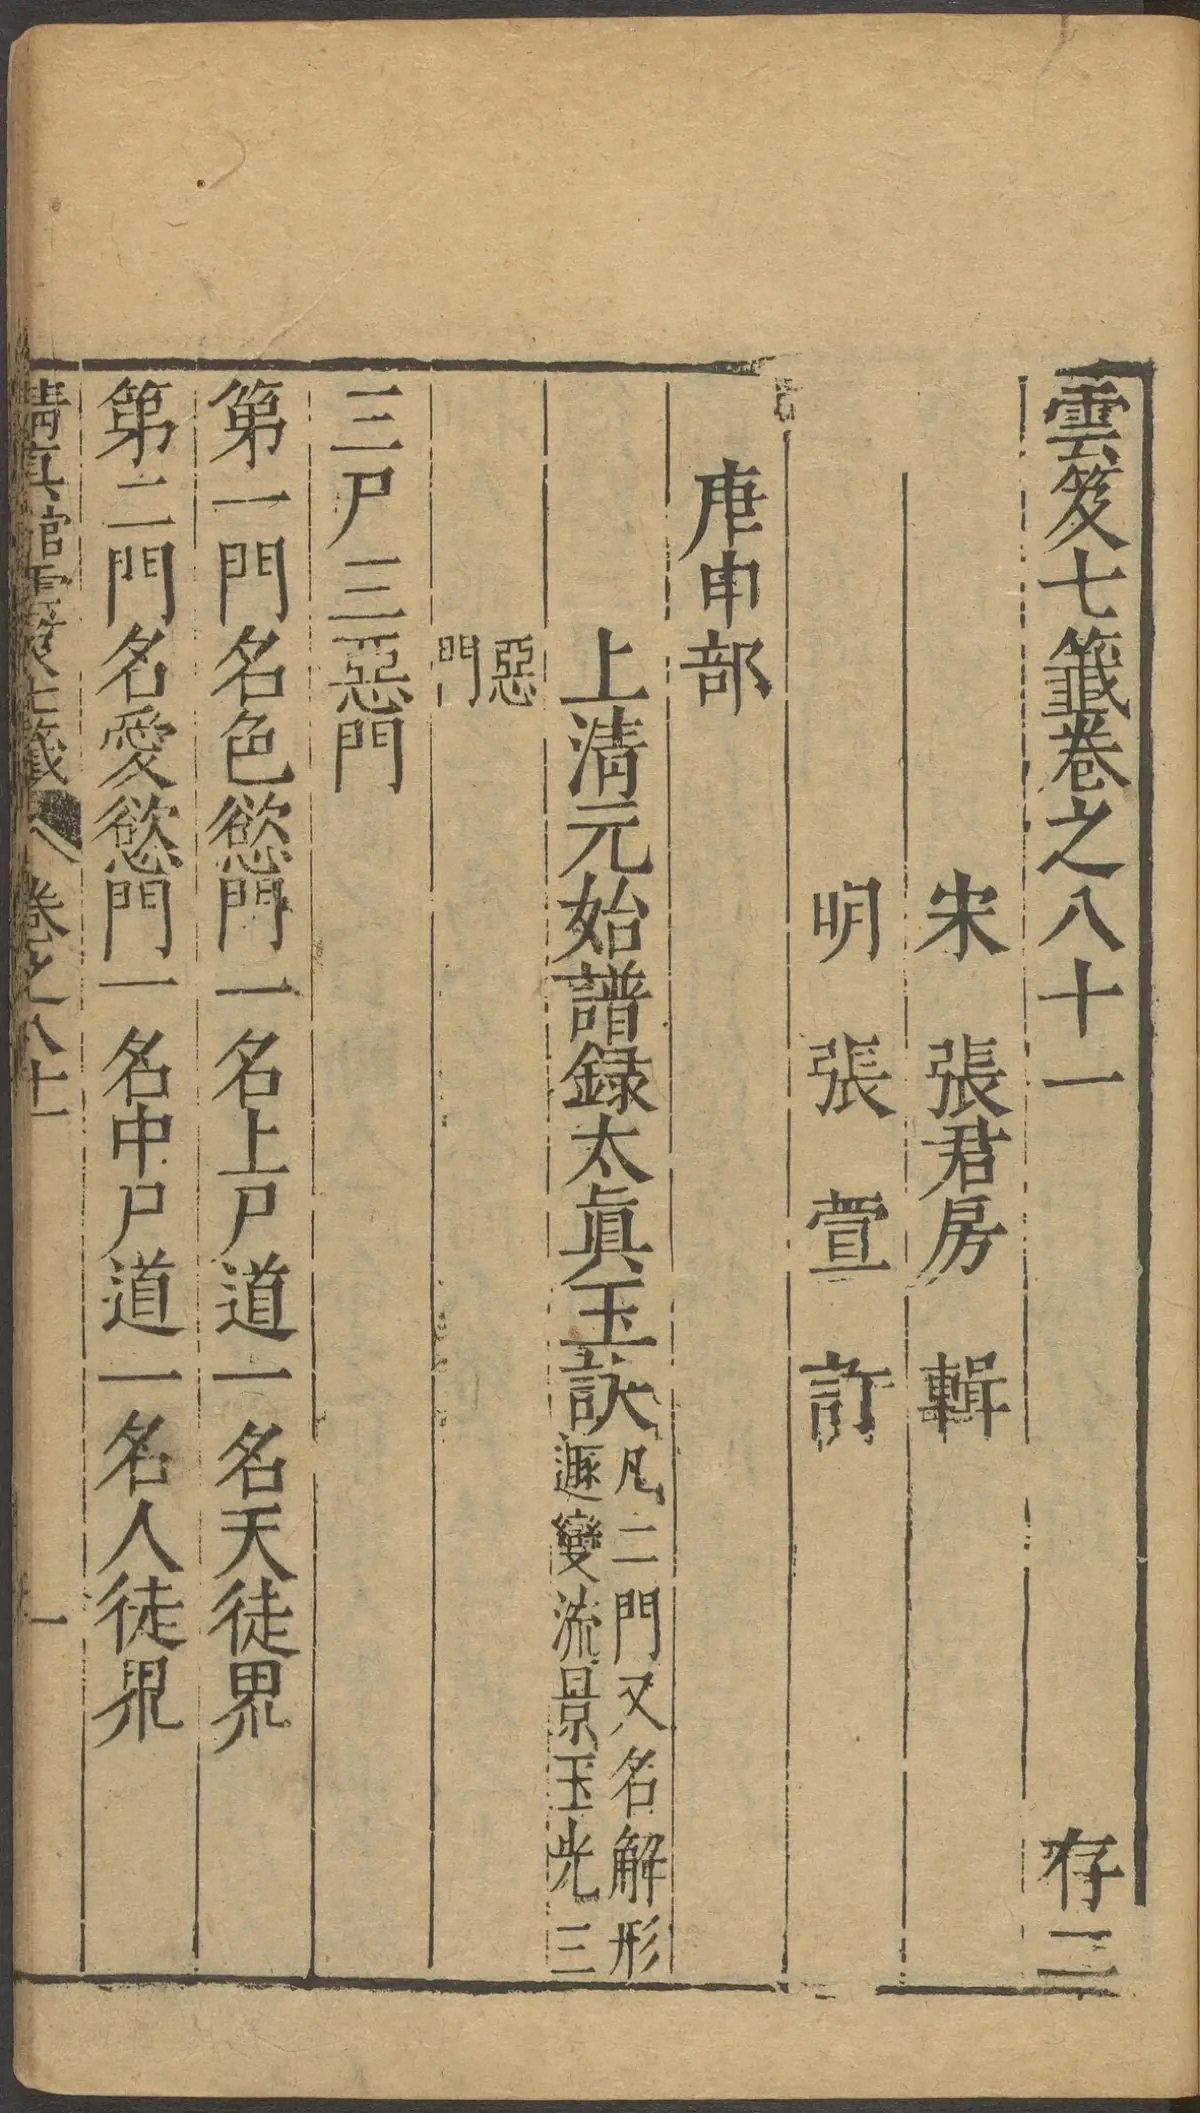 雲笈七籤卷之八十一 存二
宋 張君房 輯
明 張萱 訂
庚申部
上清元始譜録太眞玉訣凡二門又名解形
遯變流景玉光三
惡
門
三尸三惡門
第一門名色慾門一名上尸道一名天徒界
第二門名愛慾門一名中尸道一名人徒界
清真館雲笈七籤 卷之八十一 一